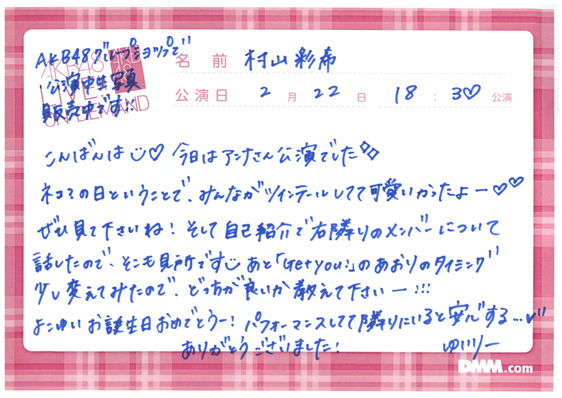 AKB48グループショップで
公演中生写真
販売中です!!
AKB48
LIVE!!
ON DEMAND
名前 村山彩希
公演日 2月22日 18:30公演
こんばんは♡ 今日はアンナさん公演でした
ネコミの日ということで、みんながツインテールしてて可愛いかったよー♡♡
ぜひ見て下さいね! そして自己紹介で右隣りのメンバーについて
話したので、そこも見所です あと「Get you!」のあおりのタイミング
少し変えてみたので、どっちが良いか教えて下さいー!!!
よこゆいお誕生日おめでとうー! パフォーマンスしてて隣りにいると安心する...
ありがとうございました! ゆいりー
DMM.com